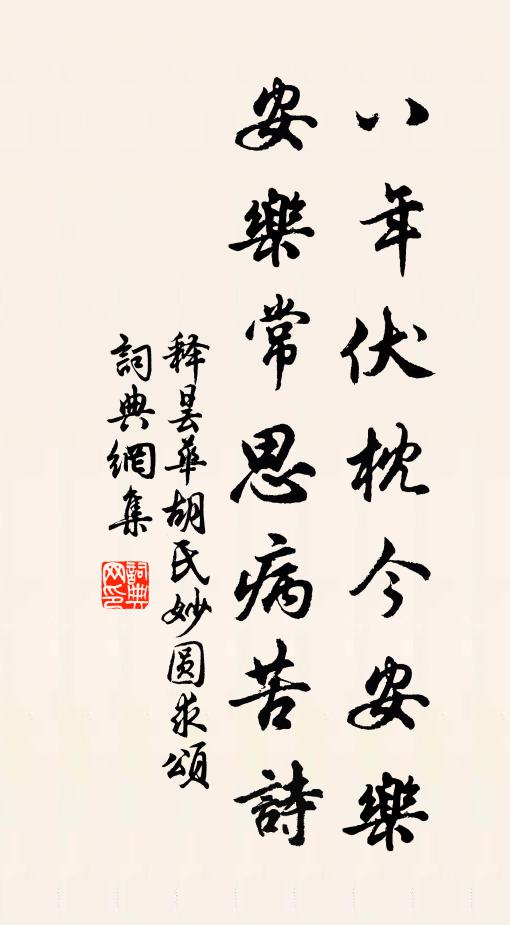 八年伏枕今安樂
安樂常思病苦詩
释昙華胡氏妙圆求頌
詞典網集
詞典网印